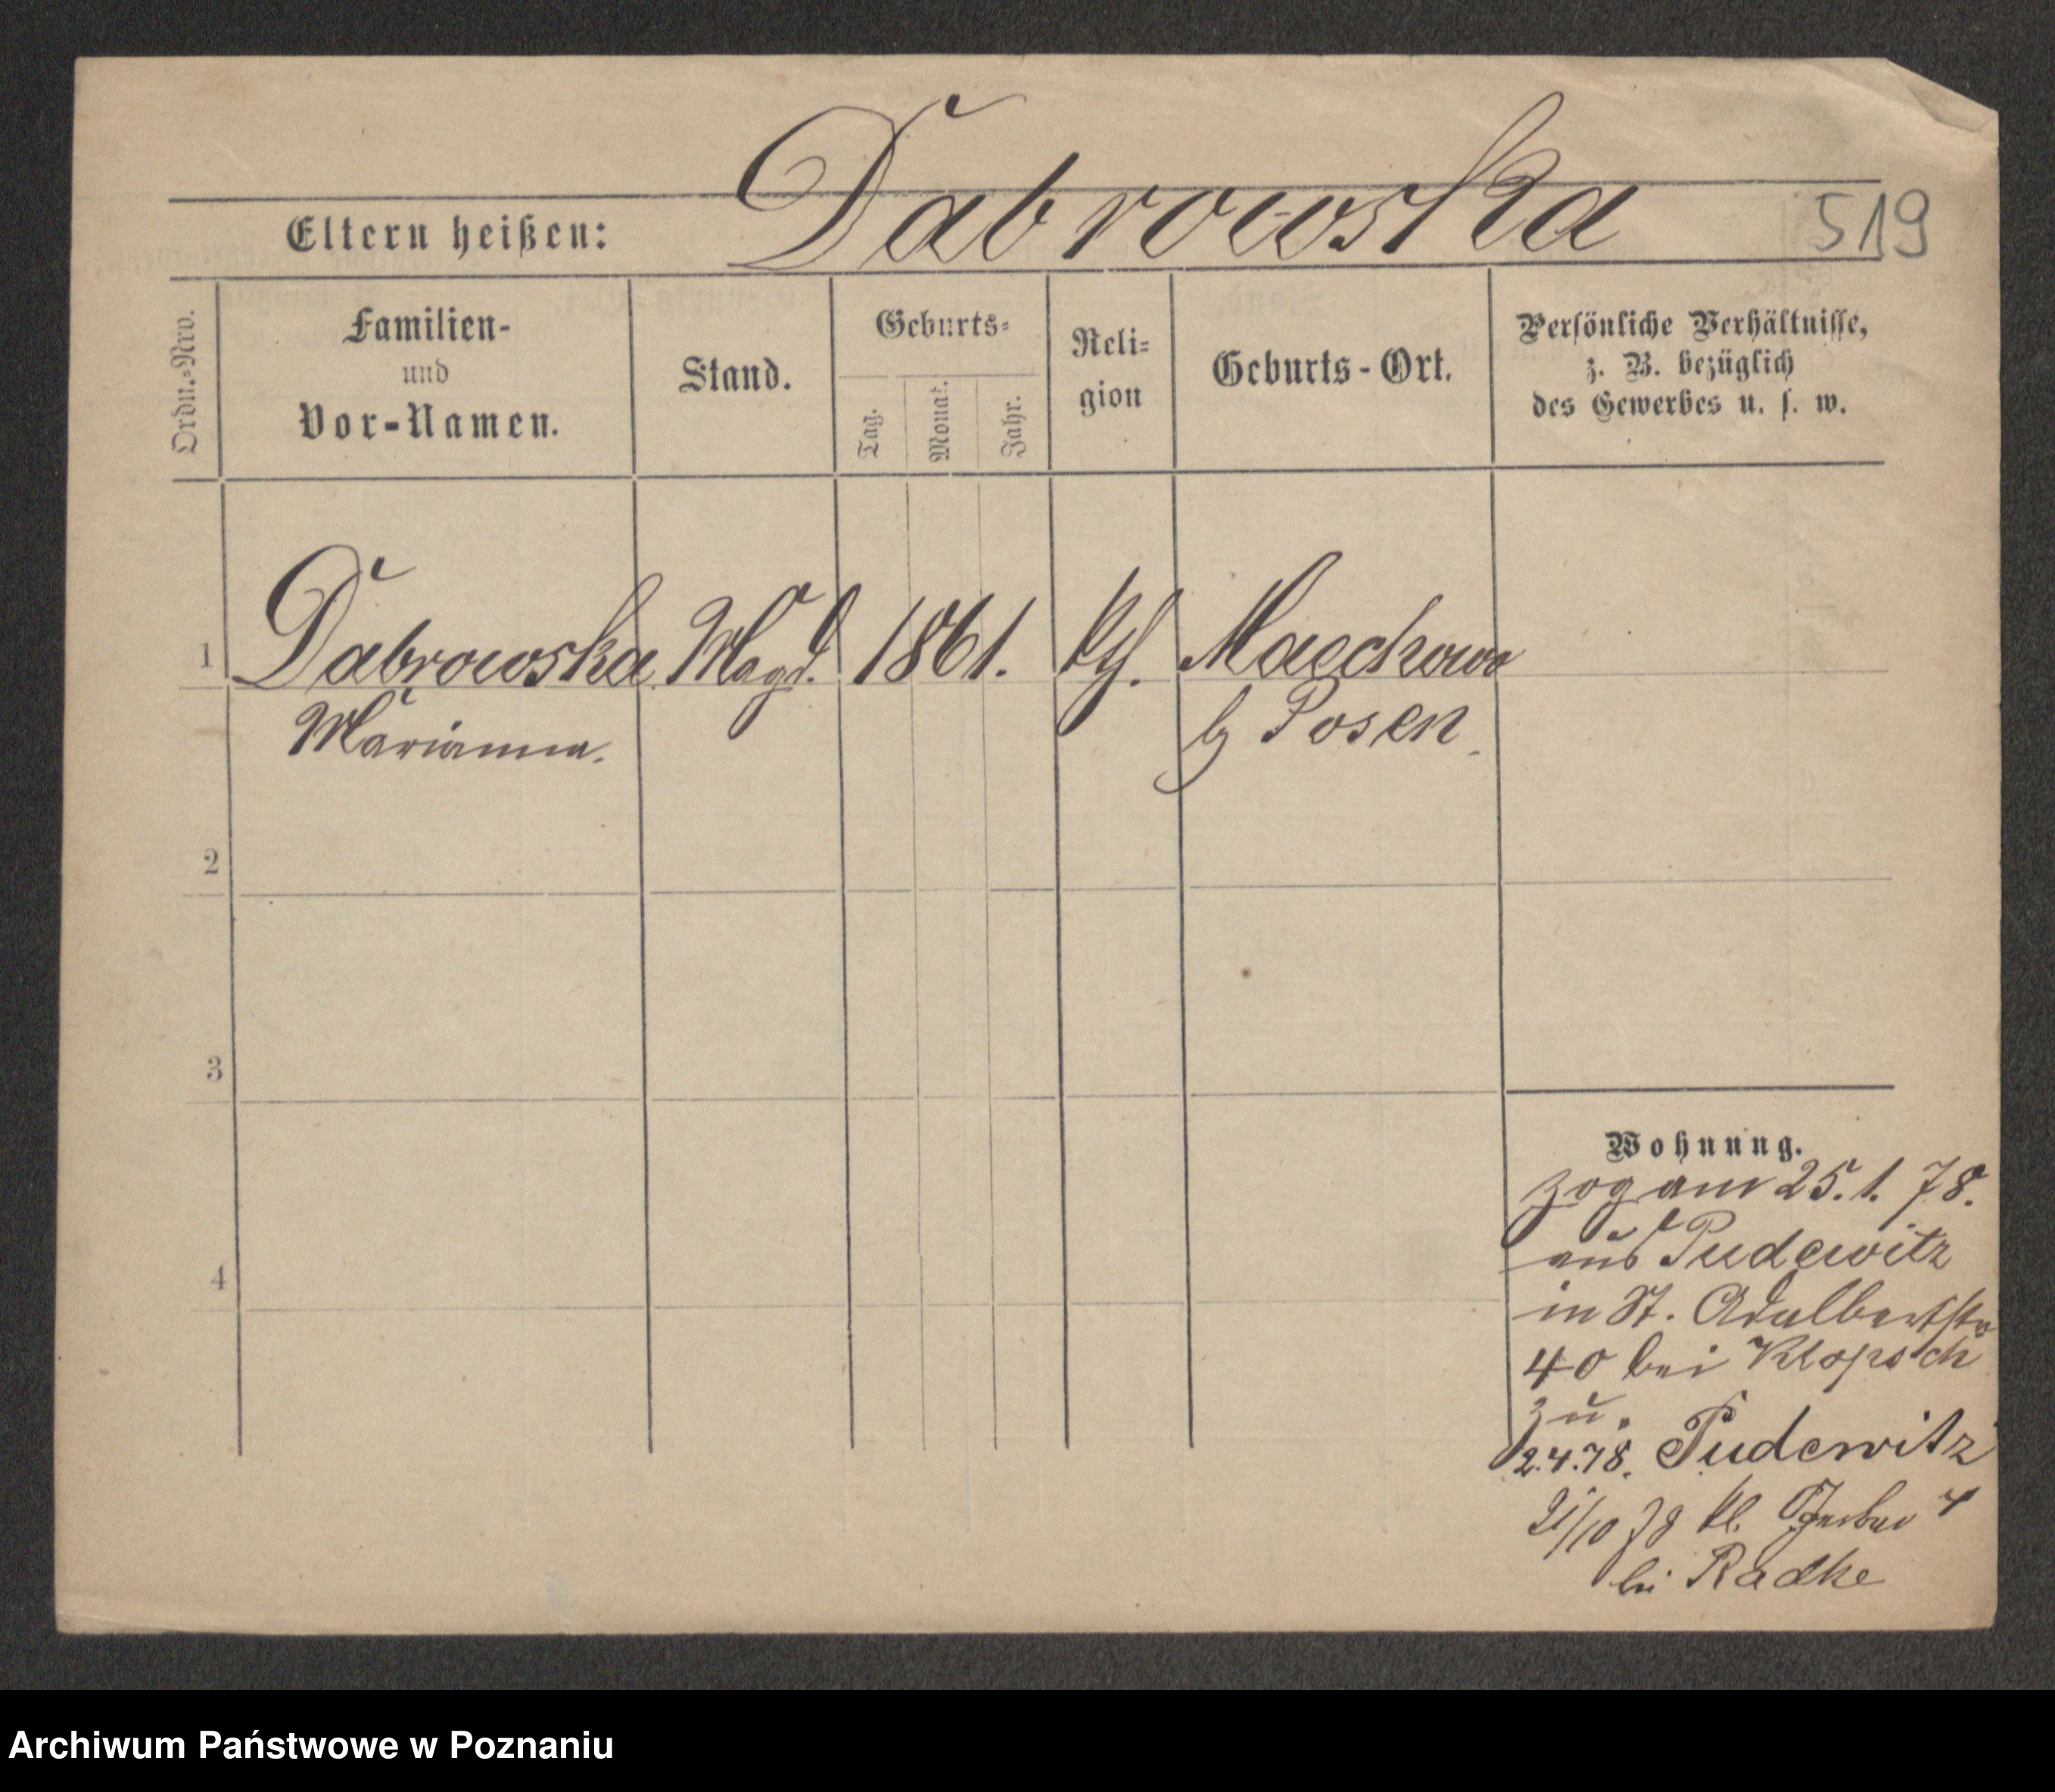 Dabrowska
519
Eltern heißen:
Ordn.-Nro.
Familien-
und
Vor-Namen.
Stand.
Geburts-
Tag.
Monat.
Jahr.
Reli-
gion
Geburts-Ort.
Persönliche Verhältnisse,
z. B. bezüglich
des Gewerbes u. s. w.
1 Dabrowska Magd. 1861. kth. Maechowo
Marianna. b Posen
2
3
4
Wohnung.
zog am 25.1.78.
aus Pudewitz
in St. Adalbertstr
40 bei Klopsch
zu.
2.4.78. Pudewitz
21/10 78 kl. Gerber 4
bei Radke
Archiwum Państwowe w Poznaniu